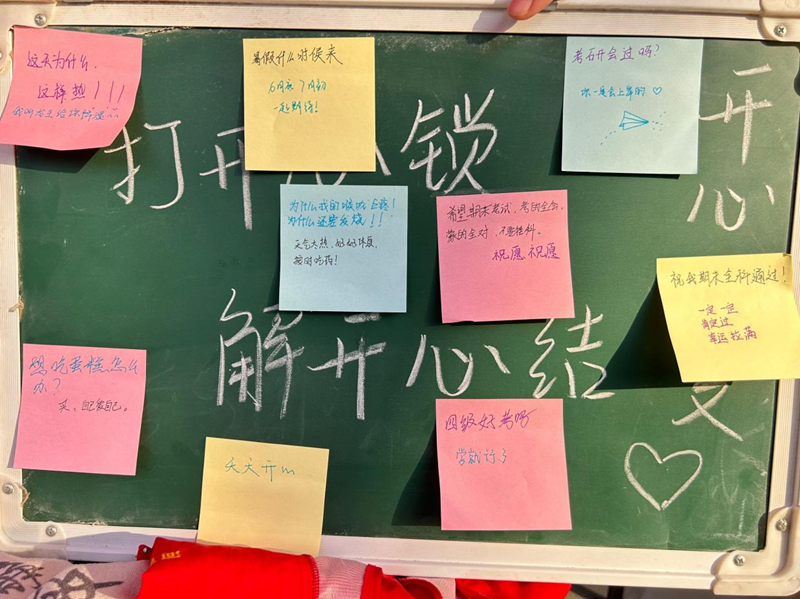 打开心锁
解开心结
开心
这天为什么
这样热！！！
暑假什么时候来
6月底7月初
一起期待！
考石开会过吗？
你一定会上岸的♡
为什么我的喉咙上疼！
为什么还要发烧！！
天气太热，好好休息，
按时吃药！
希望期末考试，考的全会，
蒙的全对，不要挂科。
祝愿 祝愿
祝我期末全科通过！
一定一定
肯定过
幸运拉满
想吃蛋糕怎么
办？
买，自己宠自己。
天天开m
四级好考吗
学就行了